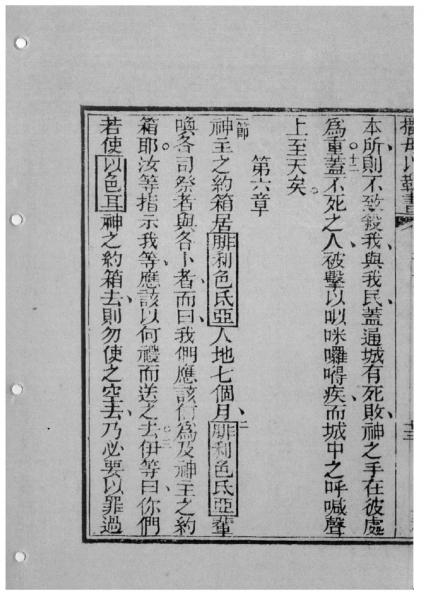 撒母以勒書
本所則不致殺我與我民蓋通城有死敗神之手在彼處
十二
為重蓋不死之人被擊以㕥咪囉㗂疾而城中之呼喊聲
上至天矣
第六章
一節
神主之約箱居腓利色氏亞人地七個月二腓利色氏亞輩
喚各司祭者與各卜者而曰我們應該行為及神主之約
箱耶汝等指示我等應該以何禮而送之去三伊等曰你們
若使以色耳神之約箱去則勿使之空去乃必要以罪過